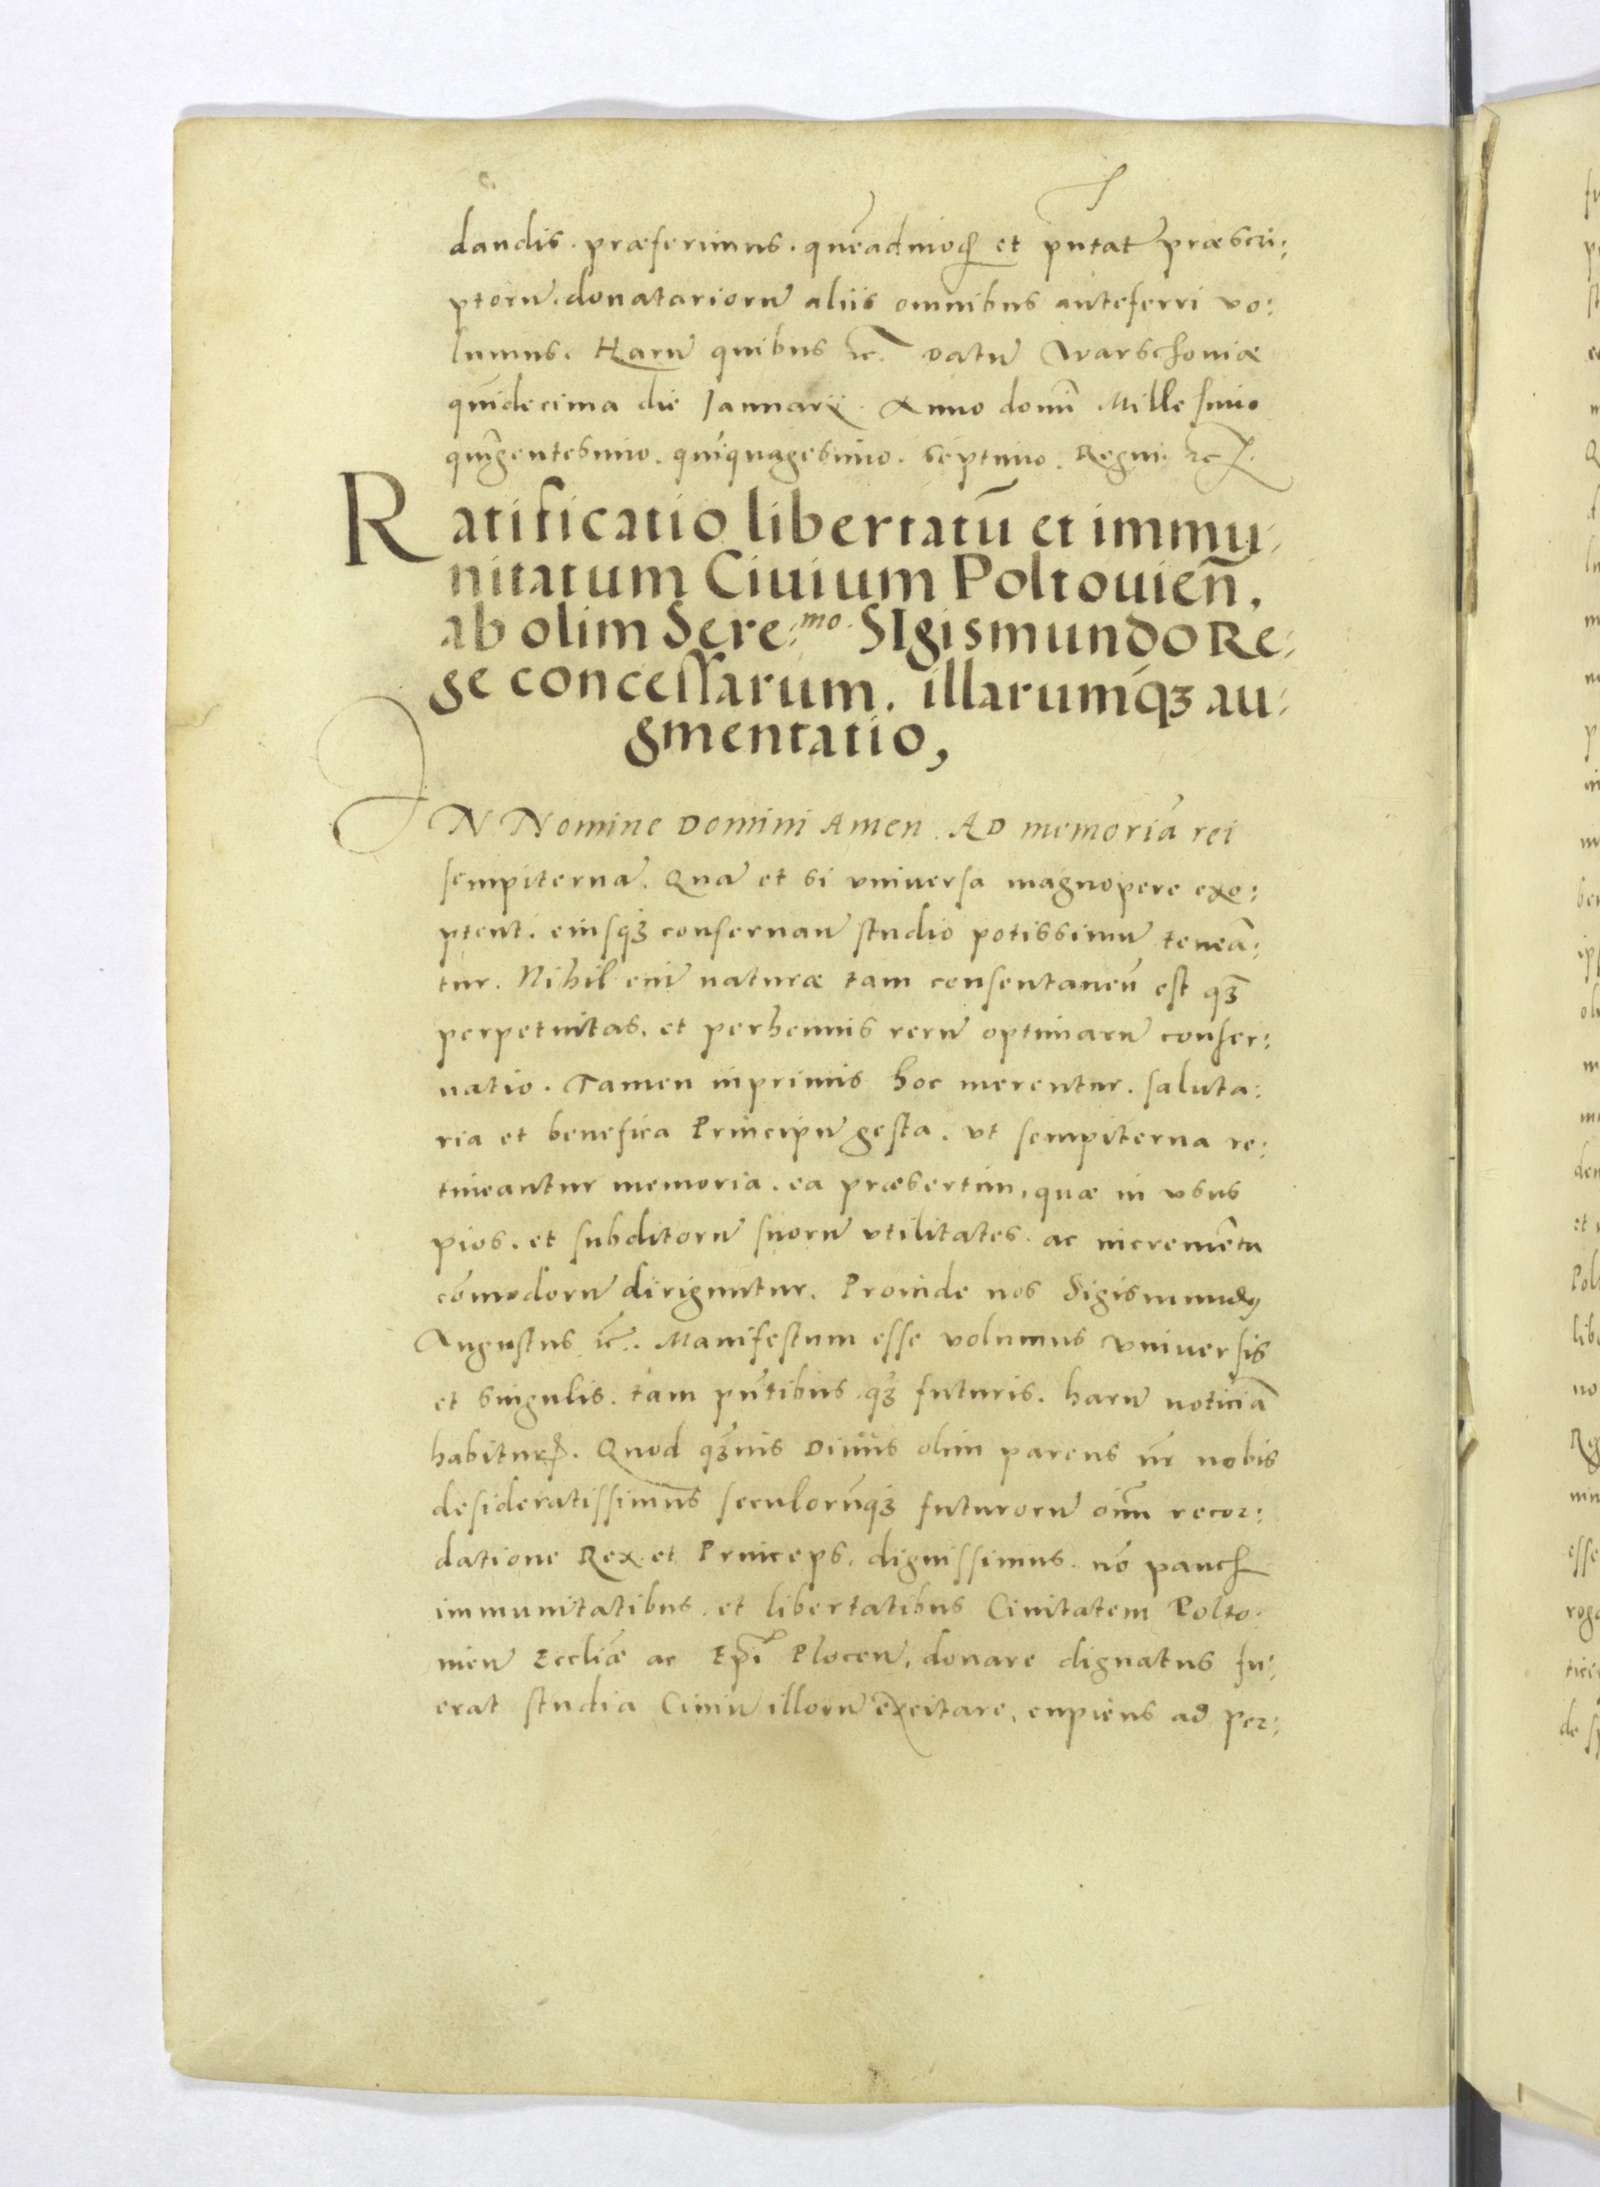 dandis. præferimus. quēadmodȝ et pn̄tatȝ præscri:
ptorū. donatariorū aliis omnibus anteferri vo:
lumus. Harū quibus ꝛc. Datū Warschoviæ
quīdecima die Ianuarij. Anno domī Millesimo
quīgentesimo. quīquagesimo. septimo. Regni. ꝛc.
Ratificatio libertatū et immu:
nitatum Civium Poltovien̄.
ab olim Sere:mo. SIgismundo Re:
ge concessarum. illarumq́ꝫ au:
gmentatio,
IN Nomine Domini Amen. AD memoriā rei
sempiternā. Quā et si vniversa magnopere exo:
ptent. eiusqꝫ conseruanū studio potissimū teneā:
tur. Nihil enī naturæ tam consentaneū est qꝫ̄
perpetuitas. et perhennis rerū optimarū conser:
uatio. Tamen inprimis hoc merentur. saluta:
ria et benefica Principū gesta. vt sempiterna re:
tineantur memoria. ea præsertim, quæ in vsus
pios. et subditorū suorū vtilitates. ac incremēta
cōmodorū diriguntur. Proinde nos Sigismundꝰ
Augustus ꝛc̄. Manifestum esse volumus vniversis
et singulis. tam pn̄tibus qꝫ̄ futuris. harū noticiā
habiturꝭ. Quod qꝫ̄uis Diuus olim parens nr̄ nobis
desideratissimus seculorūqꝫ futurorū oīm recor:
datione Rex et Princeps. dignissimus. nō paucꝭ
immunitatibus. et libertatibus Ciuitatem Polto:
uien̄ Eccliæ ac Epī Plocen̄. donare dignatus fu:
erat studia Ciuiū illorū excitare, cupiens ad per: